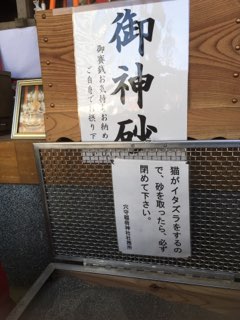 御神砂
御賽銭お気持ちお納め
ご自身でお摂り下
猫がイタズラをするの
で、砂を取ったら、必ず
閉めて下さい。
穴守稲荷神社社務所